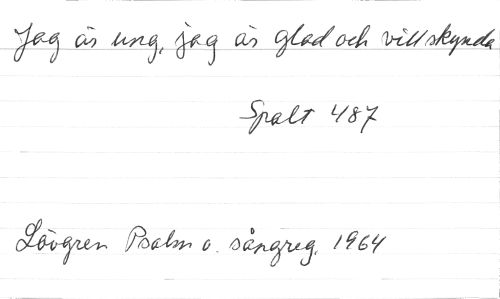 Jag är ung, jag är glad och vill skynda
Spalt 487
Lövgren Psalm o. sångreg. 1964